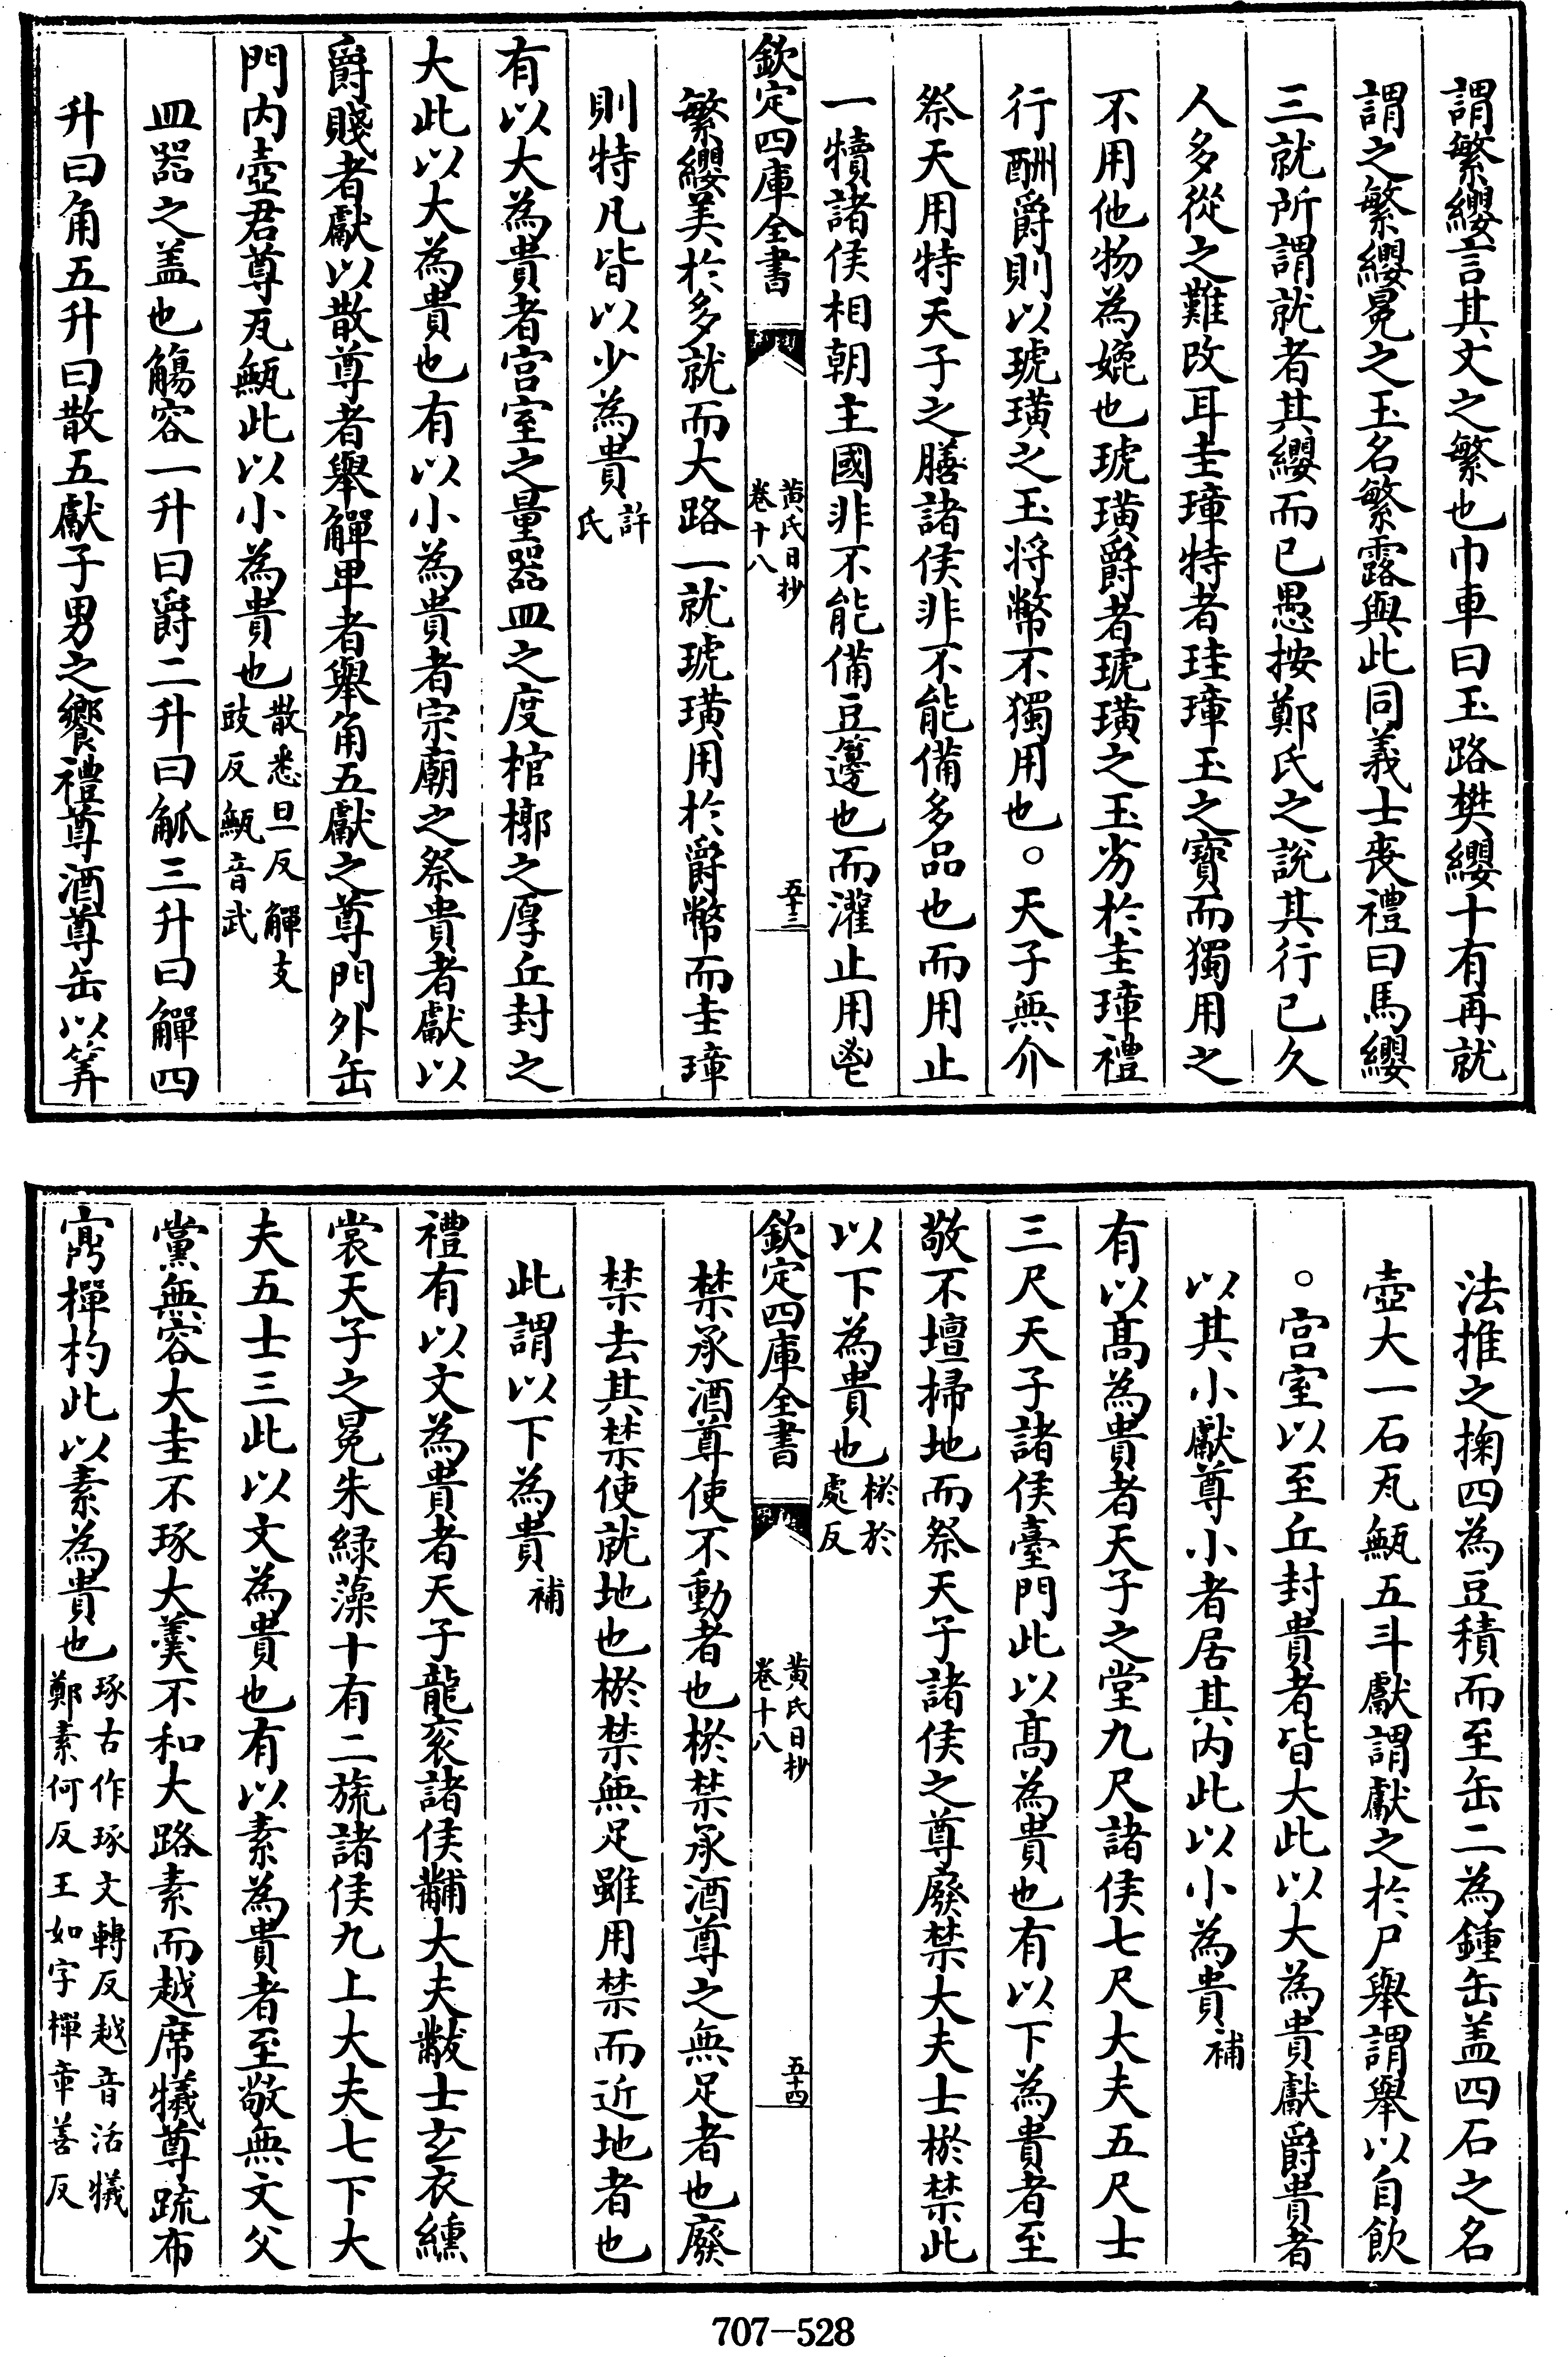 謂繁纓言其文之繁也巾車曰玉路樊纓十有再就
謂之繁纓冕之玉名繁露與此同義士喪禮曰馬纓
三就所謂就者其纓而已愚按鄭氏之說其行已久
人多從之難改耳圭璋特者珪璋玉之寳而獨用之
不用他物為媲也琥璜爵者琥璜之玉劣於圭璋禮
行酬爵則以琥璜之玉將幣不獨用也○天子無介
祭天用特天子之膳諸侯非不能備多品也而用止
一犢諸侯相朝主國非不能備豆籩也而灌止用鬯
欽定四庫全書
黄氏日抄
卷十八
五十三
繁纓美於多就而大路一就琥璜用於爵幣而圭璋
則特凡皆以少為貴許氏
有以大為貴者宫室之量器皿之度棺槨之厚丘封之
大此以大為貴也有以小為貴者宗廟之祭貴者獻以
爵賤者獻以散尊者舉觶卑者舉角五獻之尊門外缶
門内壺君尊瓦甒此以小為貴也散悉旦反觶支
豉反甒音武
皿器之盖也觴容一升曰爵二升曰觚三升曰觶四
升曰角五升曰散五獻子男之饗禮尊酒尊缶以筭
法推之掬四為豆積而至缶二為鍾缶盖四石之名
壺大一石瓦甒五斗獻謂獻之於尸舉謂舉以自飲
○宫室以至丘封貴者皆大此以大為貴獻爵貴者
以其小獻尊小者居其内此以小為貴補
有以髙為貴者天子之堂九尺諸侯七尺大夫五尺士
三尺天子諸侯臺門此以髙為貴也有以下為貴者至
敬不壇掃地而祭天子諸侯之尊廢禁大夫士棜禁此
以下為貴也棜於
處反
欽定四庫全書
黄氏日抄
卷十八
五十四
禁承酒尊使不動者也棜禁承酒尊之無足者也廢
禁去其禁使就地也棜禁無足雖用禁而近地者也
此謂以下為貴補
禮有以文為貴者天子龍衮諸侯黼大夫黻士玄衣纁
裳天子之冕朱緑藻十有二旒諸侯九上大夫七下大
夫五士三此以文為貴也有以素為貴者至敬無文父
黨無容大圭不琢大羮不和大路素而越席犧尊疏布
鼏樿杓此以素為貴也琢古作琢文轉反越音活犧
鄭素何反王如字樿章善反
707-528